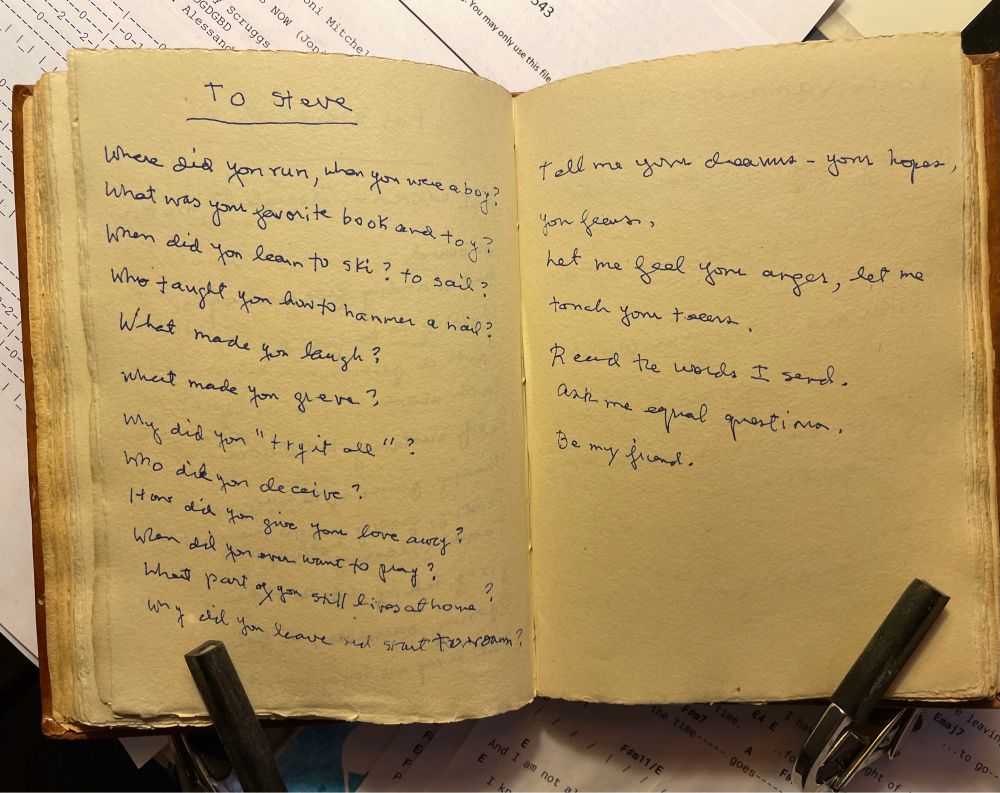 oni Mitchel
NOW (Jon
y Scruggs
OGDGBD
Alessand
. You may only use this file
543
To Steve
Where did you run, when you were a boy?
What was your favorite book and toy?
When did you learn to ski? to sail?
Who taught you how to hammer a nail?
What made you laugh?
What made you grieve?
Why did you "try it all"?
Who did you deceive?
How did you give your love away?
When did you ever want to pray?
What part of you still lives at home?
Why did you leave and start to roam?
Tell me your dreams - your hopes,
you fears,
Let me feel your anger, let me
touch your tears.
Read the words I send.
Ask me equal questions.
Be my friend.
F#m7
time,
E4 E
I ha
e leavin
Emaj7
the time-----
A
...to go--
E
F#m11/E
goes----
..fo
ght of
And I am not a
E
I k